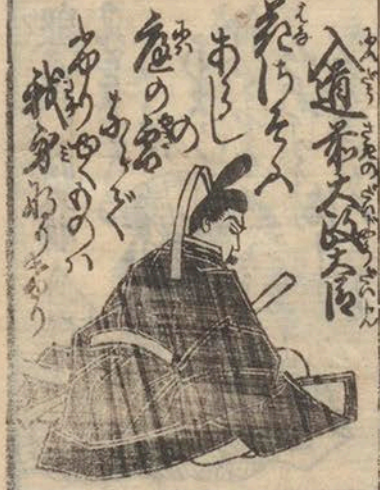 入道前大政大臣
花さそふ
あらしの
庭の雪
ならで
ふりゆくものハ
我身なりけり